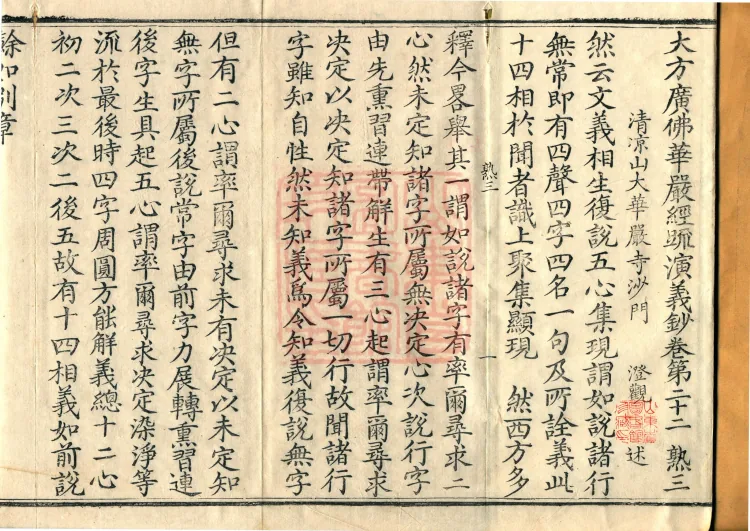 大方廣佛華嚴經疏演義鈔卷第二十二 熟三
清涼山大華嚴寺沙門 澄觀 述
然云文義相生復說五心集現謂如說諸行
無常即有四聲四字四名一句及所詮義此
十四相於聞者識上聚集顯現 然西方多
熟三 一
釋今畧舉其一謂如說諸字有率爾尋求二
心然未定知諸字所屬無決定心次說行字
由先熏習連帶解生有三心起謂率爾尋求
決定以決定知諸字所屬一切行故聞諸行
字雖知自性然未知義爲令知義復說無字
但有二心謂率爾尋求未有決定以未定知
無字所屬後說常字由前字力展轉熏習連
後字生具起五心謂率爾尋求決定染淨等
流於最後時四字周圓方能解義總十二心
初二次三次二後五故有十四相義如前說
餘如別章